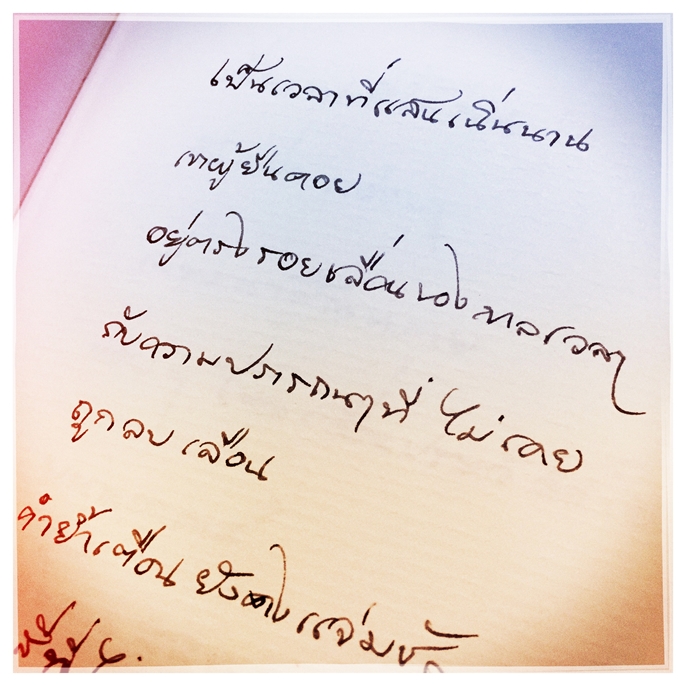 เป็นเวลาที่แสนเนิ่นนาน
เขาผู้ยืนคอย
อยู่ตรงรอยเลื่อนของกาลเวลา
กับความปรารถนาที่ไม่เคย
ถูกลบเลือน
คำย้ำเตือน ยังคงแจ่มชั